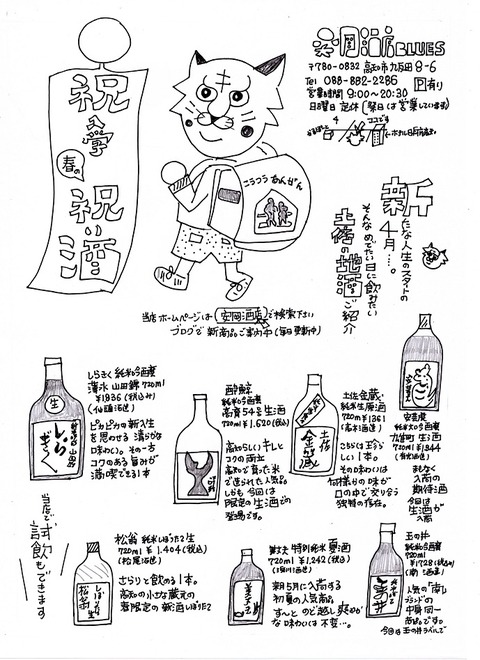 安岡酒店BLUES
〒780-0832 高知市九反田8-6
Tel 088-882-2286 P有り
営業時間 9:00〜20:30
日曜日定休(祭日は営業しています)
ココです
祝
入学
春の
祝い
酒
こうつうあんぜん
新たな人生のスタートの
4月…。
そんなめでたい日に飲みたい
土佐の地酒ご紹介
当店ホームページは 安岡酒店 で検索下さい
ブログで新商品ご案内中(毎日更新中)
しらぎく 純米吟醸
薄氷 山田錦 720ml
¥1,836(税込み)
(仙頭酒造)
ピカピカの新入生
を思わせる清らかな
味わい。その一方
コクのある旨みが
満喫できる1本
生
しらぎく
酔鯨
純米吟醸
高育54号 生酒
720ml ¥1,620(税込)
高知らしいキレと
コクの両立
高知で育った米
で造られた人気品。
しかも今回は
限定の生酒での
登場です。
土佐金蔵
純米生原酒
720ml ¥1361
(高木酒造)
こちらは珍ら
しい1本。
その味わいは
何種かの味が
口の中で交り合う
独特の存在。
安芸虎
純米大吟醸
720ml ¥1,944
まもなく
入荷の
期待酒
今回は
生酒が
入荷
当店で試飲もできます
松翁 純米しぼりたて生
720ml ¥1,404(税込)
(松尾酒造)
さらりと飲める1本。
高知の小さな蔵元の
春限定の新酒しぼりたて
美丈夫 特別純米 夏酒
720ml ¥1,242(税込)
(濵川酒造)
朝5月に入荷する
初夏の人気商品。
すーっとのど越し爽やか
な味わいは不変…。
美丈夫
玉の井
純米吟醸
720ml ¥1728(税込)
(南酒造)
人気の「南」
ブランドの
中身同一
商品です。
今回は玉の井ラベルで
玉の井